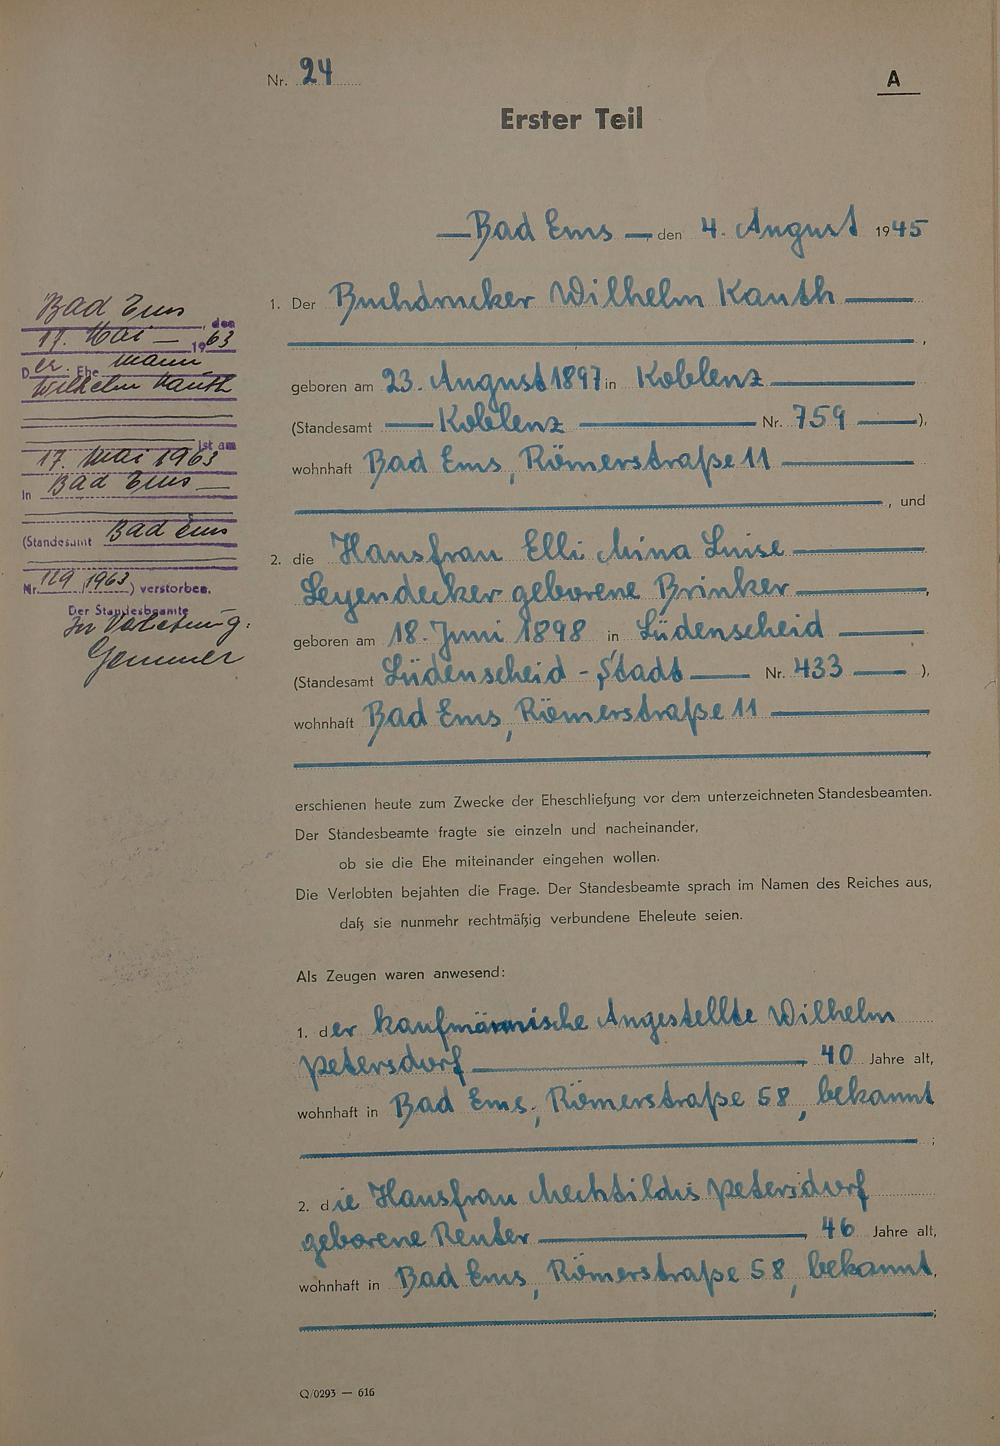 Nr. 24
A
Erster Teil
Bad Ems, den 4. August 1945
1. Der Buchdrucker Wilhelm Kauth
,
geboren am 23. August 1897 in Koblenz
(Standesamt Koblenz Nr. 759 ),
wohnhaft Bad Ems, Römerstraße 11
, und
2. die Hausfrau Elli Mina Luise
Leyendecker geborene Brinker,
geboren am 18. Juni 1898 in Lüdenscheid
(Standesamt Lüdenscheid-Stadt Nr. 433 ),
wohnhaft Bad Ems, Römerstraße 11
erschienen heute zum Zwecke der Eheschließung vor dem unterzeichneten Standesbeamten.
Der Standesbeamte fragte sie einzeln und nacheinander,
ob sie die Ehe miteinander eingehen wollen.
Die Verlobten bejahten die Frage. Der Standesbeamte sprach im Namen des Reiches aus,
daß sie nunmehr rechtmäßig verbundene Eheleute seien.
Als Zeugen waren anwesend:
1. der kaufmännische Angestellte Wilhelm
Petersdorf, 40 Jahre alt,
wohnhaft in Bad Ems, Römerstraße 58, bekannt
;
2. die Hausfrau Mechtildis Petersdorf
geborene Reuter, 46 Jahre alt,
wohnhaft in Bad Ems, Römerstraße 58, bekannt,
;
Q/0293 — 616
Bad Ems, den
17. Mai 1963
Der Ehemann
Wilhelm Kauth
ist am
17. Mai 1963
in Bad Ems
(Standesamt Bad Ems
Nr. 129/1963) verstorben.
Der Standesbeamte
In Vertretung:
Gemmer